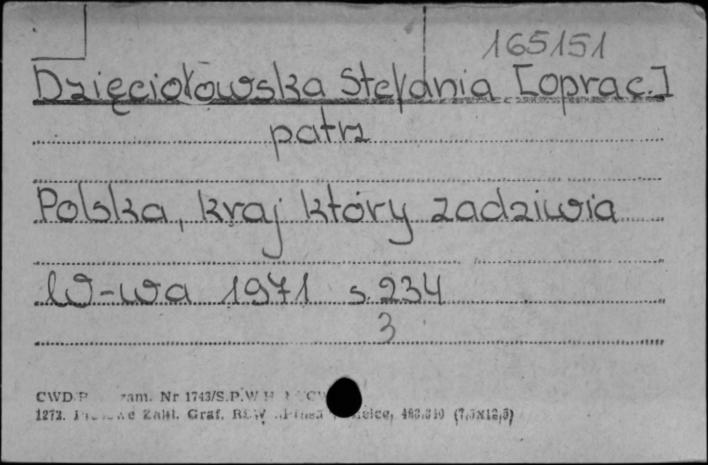 165151
Dzięciołowska Stefania [oprac.]
patrz
Polska, kraj który zadziwia
W-wa 1971 s. 234
3
CWD zam. Nr 1743/S.P.W
1273. Zakł. Graf. RSW